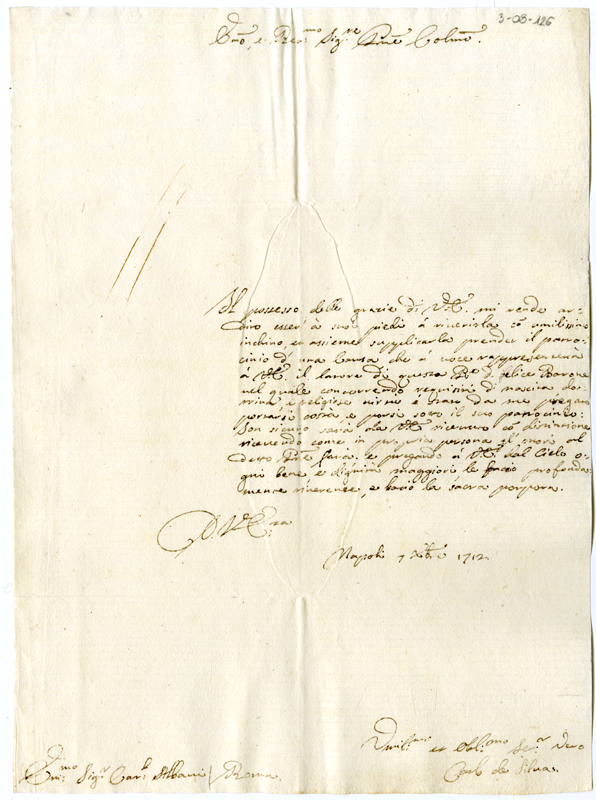 3-03-126
Em.mo, e Rev.mo Sig.re P.rne Colmo.
Il possesso delle grazie di V.E. mi rende ar-
diro esser à suoi piedi à riverirla cõ umilissimo
inchino, et assieme supplicarla prender il patro-
cinio d' una Causa che à voce rappresenterà
à V.E. il latore di questa P.re D. Felice Barone
nel quale concorrendo requisiti di nascita dot-
trina, e religiose virtù è stato da me pregato
portarsi costà e porsi sotto il suo patrocinio.
Son sicuro sarà da V.E. ricevuto cõ distinzione
ricevendo come in propria persona gl' onori al
detto P.re farà. e pregando à V.E. dal Cielo o-
gni bene e dignità maggiori le faccio profonda-
mente riverenze, e bacio la sacra porpora.
D. V. E.za
Napoli 7 Xbre 1712.
Umil.mo et Obl.mo Ser.r Vero
Carlo de Silva
Em.mo Sig.r Car.l Albani / Roma.